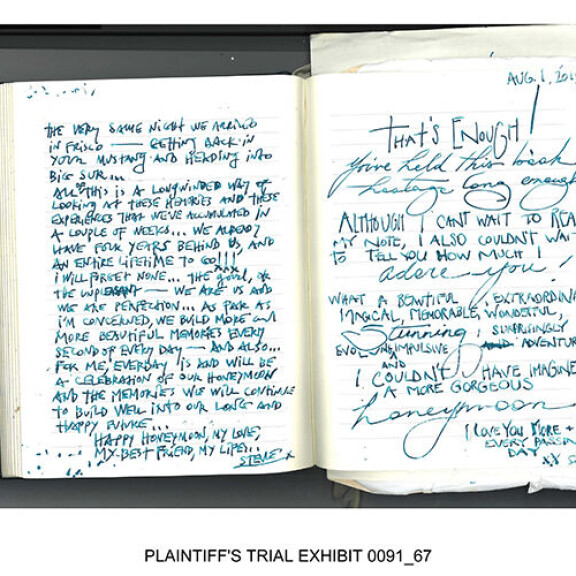 THE VERY SAME NIGHT WE ARRIVED
IN FRISCO — GETTING BACK IN
YOUR MUSTANG AND HEADING INTO
BIG SUR...
ALL THIS IS A LONGWINDED WAY OF
LOOKING AT THESE MEMORIES AND THESE
EXPERIENCES THAT WE'VE ACCUMULATED IN
A COUPLE OF WEEKS... WE ALREADY
HAVE FOUR YEARS BEHIND US, AND
AN ENTIRE LIFETIME TO GO!!!
I WILL FORGET NONE... THE GOOD, OR
THE UNPLEASANT — WE ARE US AND
WE ARE PERFECTION... AS FAR AS
I'M CONCERNED, WE BUILD MORE AND
MORE BEAUTIFUL MEMORIES EVERY
SECOND OF EVERY DAY — AND ALSO...
FOR ME, EVERYDAY IS AND WILL BE
A CELEBRATION OF OUR HONEYMOON
AND THE MEMORIES WE WILL CONTINUE
TO BUILD WELL INTO OUR LONG AND
HAPPY FUTURE...
HAPPY HONEYMOON, MY LOVE,
MY BEST FRIEND, MY LIFE...
STEVE X
AUG. 1, 201
THAT'S ENOUGH!
You've held this book
hostage long enough
ALTHOUGH I CANT WAIT TO REA
MY NOTE, I ALSO COULDN'T WAIT
TO TELL YOU HOW MUCH I
adore you!
WHAT A BEAUTIFUL, EXTRAORDINA
MAGICAL, MEMORABLE, WONDERFUL,
Stunning, SURPRISINGLY
IMPULSIVE AND ADVENTUR
I COULDN'T HAVE IMAGINE
A MORE GORGEOUS
honeymoon
I LOVE YOU MORE +
EVERY PASSIN
DAY
XX
PLAINTIFF'S TRIAL EXHIBIT 0091_67